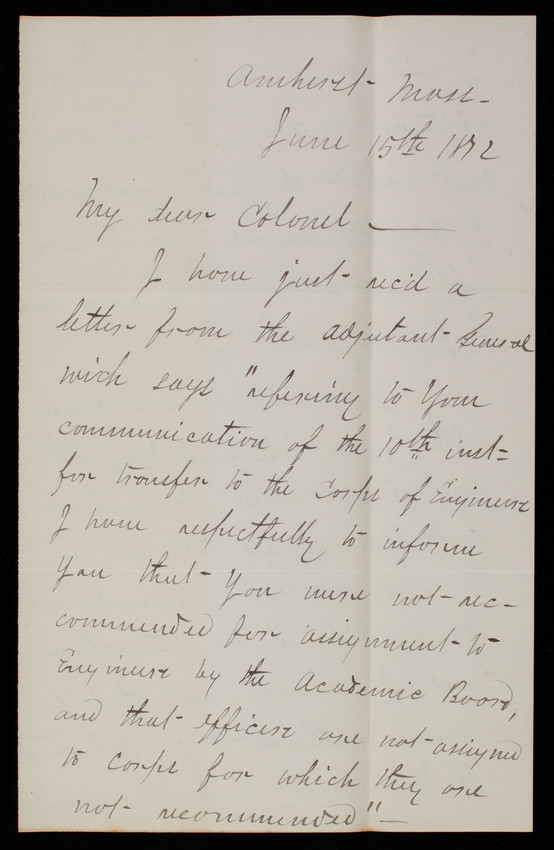 Amherst Mass -
June 15th 1872
My dear Colonel -
I have just rec'd a
letter from the adjutant General
wich says "refering to Your
communication of the 10th inst-
for transfer to the Corps of Engineers
I have respectfully to inform
You that You were not rec-
commended for assignment to
Engineers by the Academic Board,
and that officers are not assigned
to corps for which they are
not recommended" -